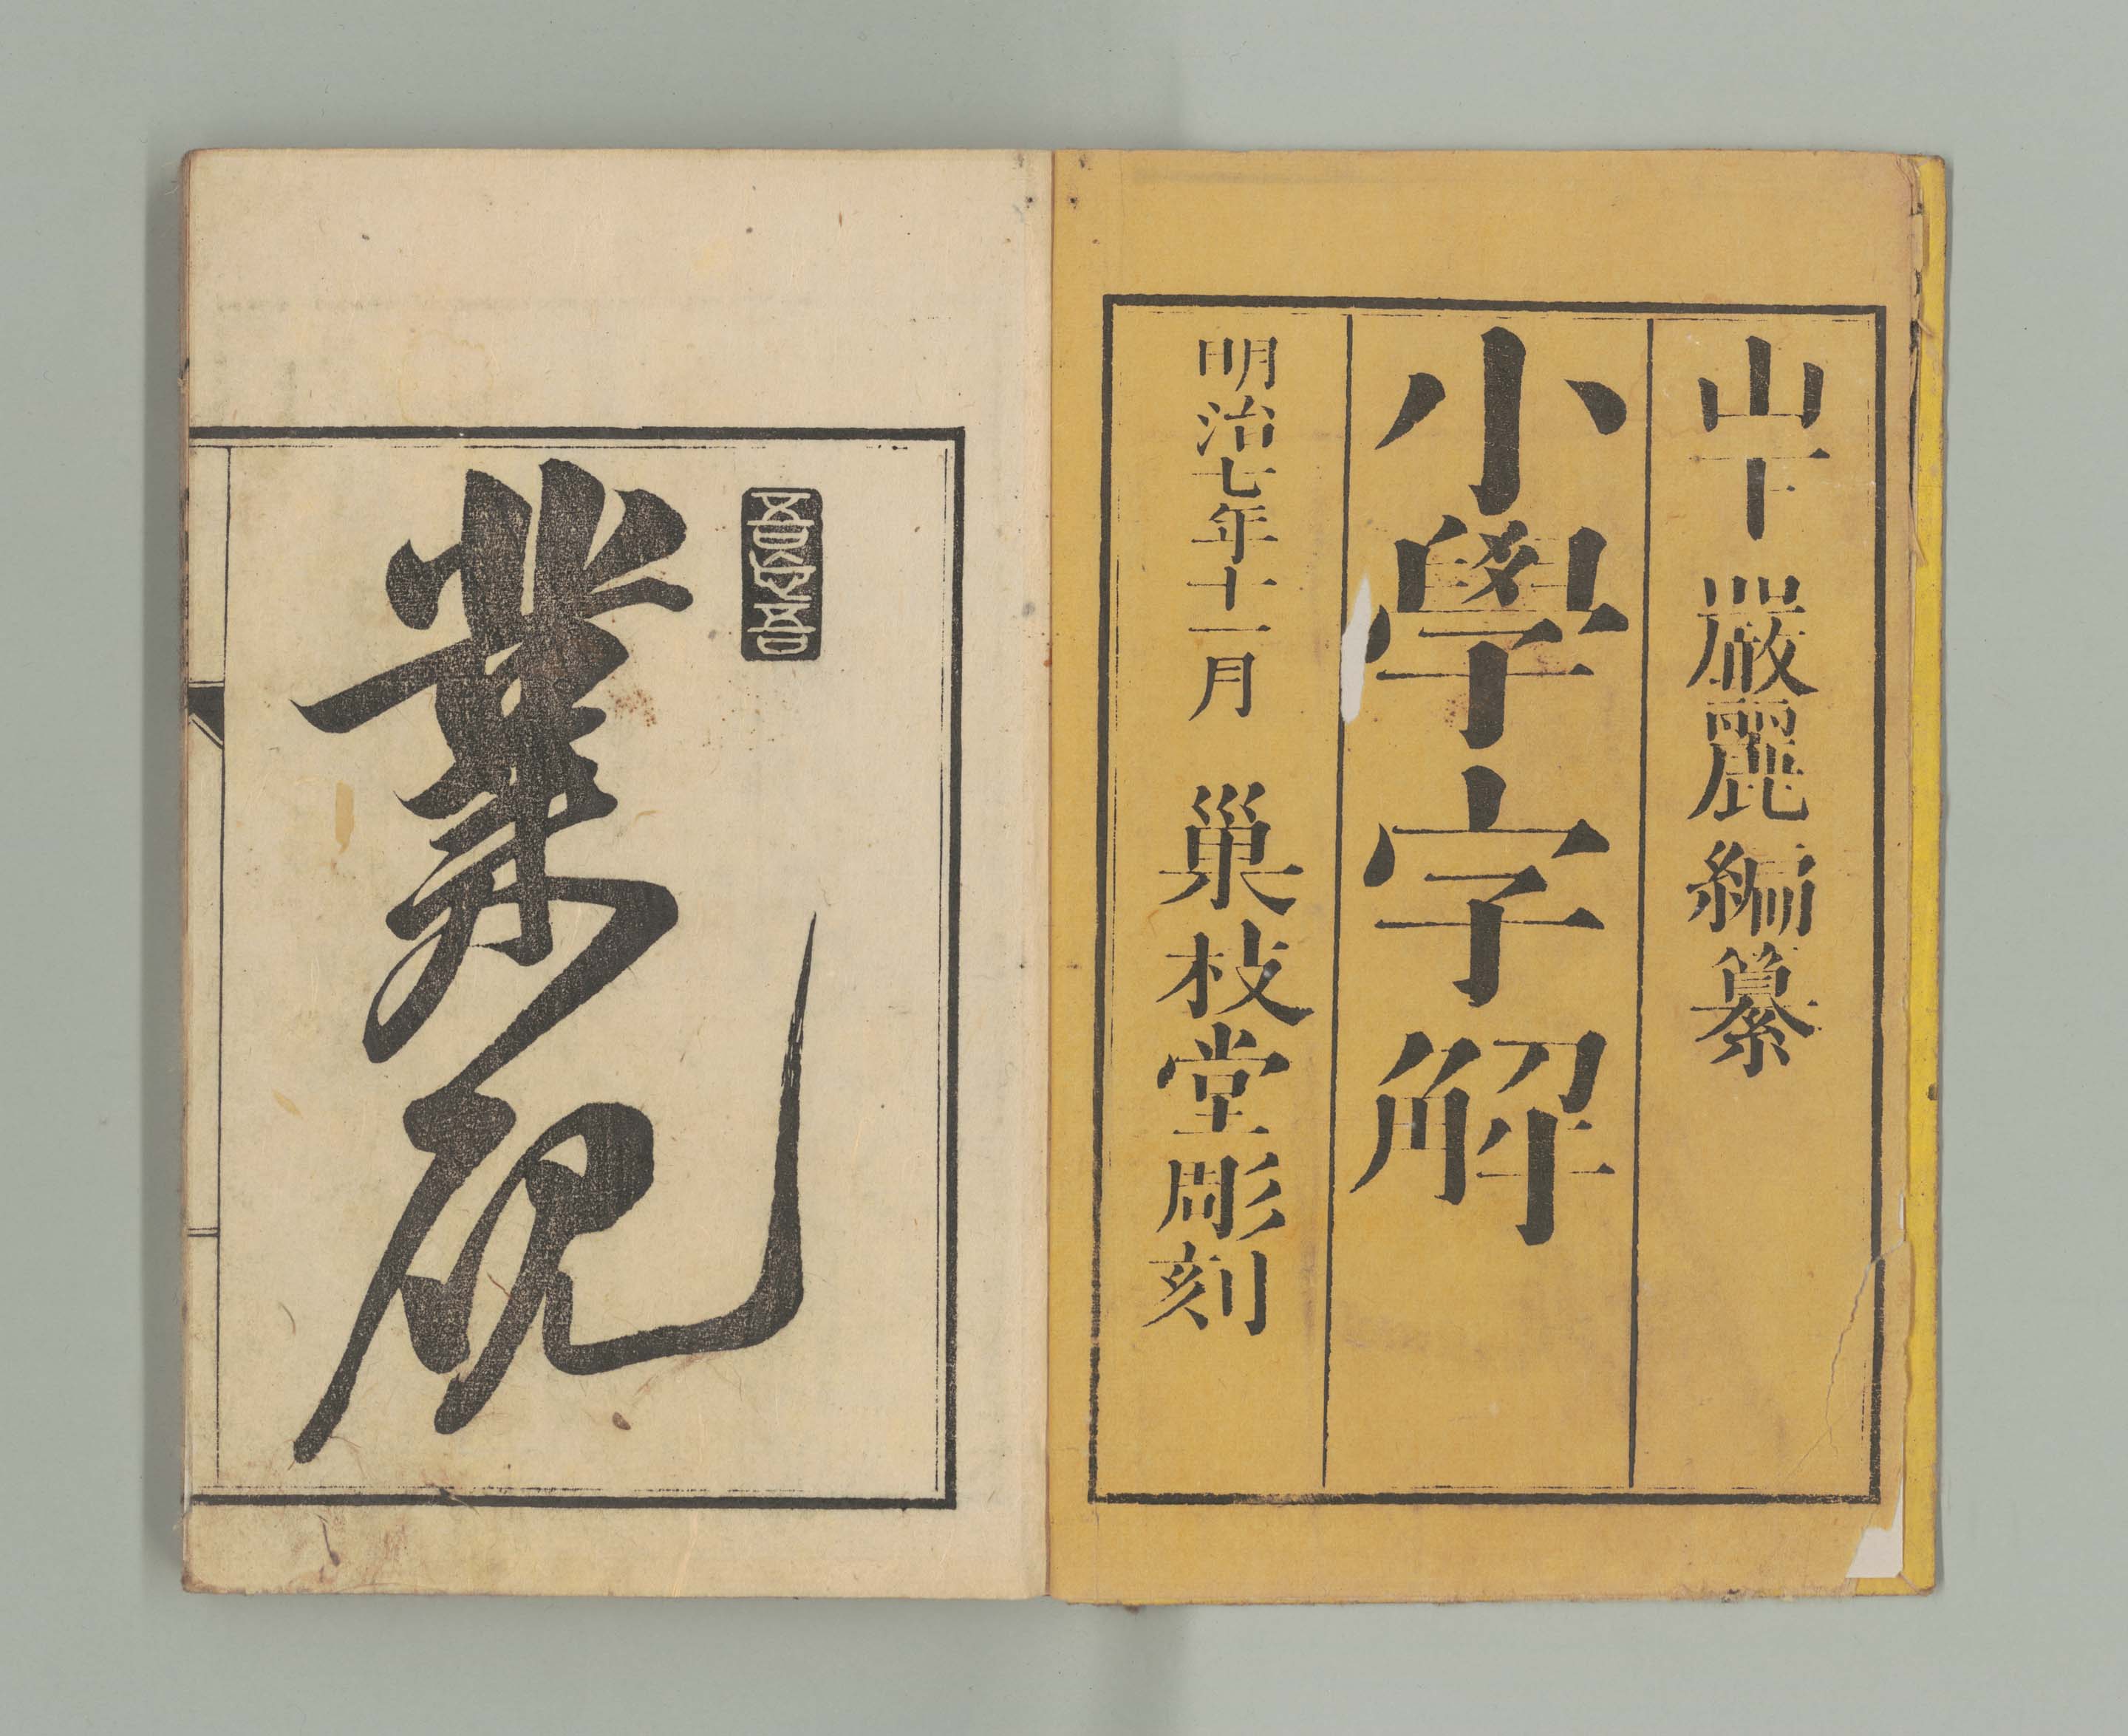 山下 嚴麗編纂
小學字解
明治七年十一月 巢枝堂彫刻
業